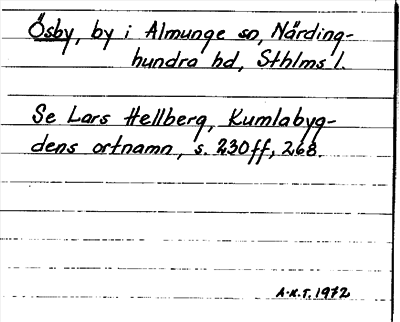 Ösby, by i Almunge sn, Närding-
hundra hd, Sthlms l.
Se Lars Hellberg, Kumlabyg-
dens ortnamn, s. 230ff, 268.
A.K.T. 1972